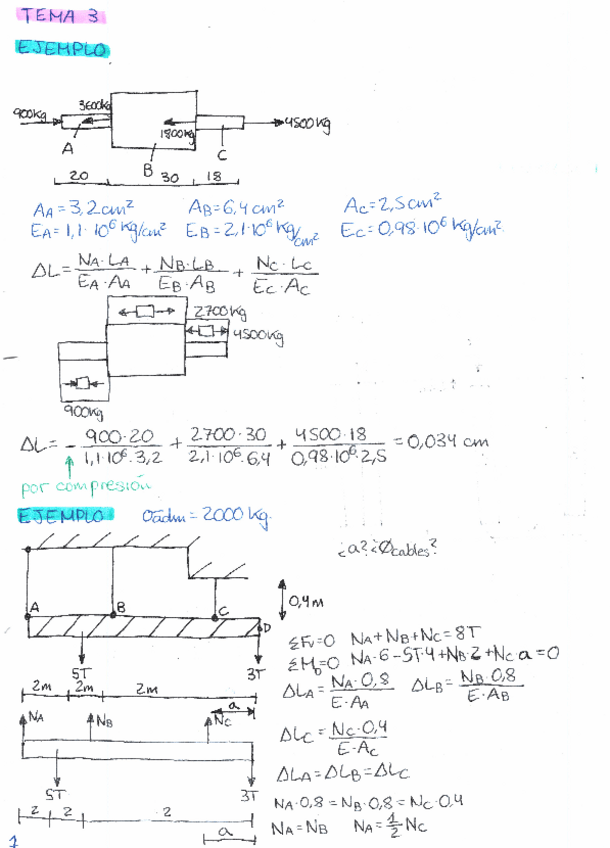 TEMA 3
EJEMPLO
900kg 3600kg 1800kg 4500kg
A B C
20 30 18
A_A = 3,2 cm² A_B = 6,4 cm² A_C = 2,5 cm²
E_A = 1,1·10⁶ kg/cm² E_B = 2,1·10⁶ kg/cm² E_C = 0,98·10⁶ kg/cm²
ΔL = N_A·L_A / E_A·A_A + N_B·L_B / E_B·A_B + N_C·L_C / E_C·A_C
2700kg
4500kg
900kg
ΔL = - 900·20 / 1,1·10⁶·3,2 + 2700·30 / 2,1·10⁶·6,4 + 4500·18 / 0,98·10⁶·2,5 = 0,034 cm
por compresión
EJEMPLO σadm = 2000 kg.
¿a? ¿Øcables?
0,4m
A B C D
5T 3T
2m 2m 2m
ΣFv=0 N_A+N_B+N_C=8T
ΣM_D=0 N_A·6-5T·4+N_B·2+N_C·a=0
ΔL_A = N_A·0,8 / E·A_A ΔL_B = N_B·0,8 / E·A_B
a
N_A N_B N_C
ΔL_C = N_C·0,4 / E·A_C
ΔL_A = ΔL_B = ΔL_C
5T 3T
2 2 2
a
N_A·0,8 = N_B·0,8 = N_C·0,4
N_A = N_B N_A = 1/2 N_C
1